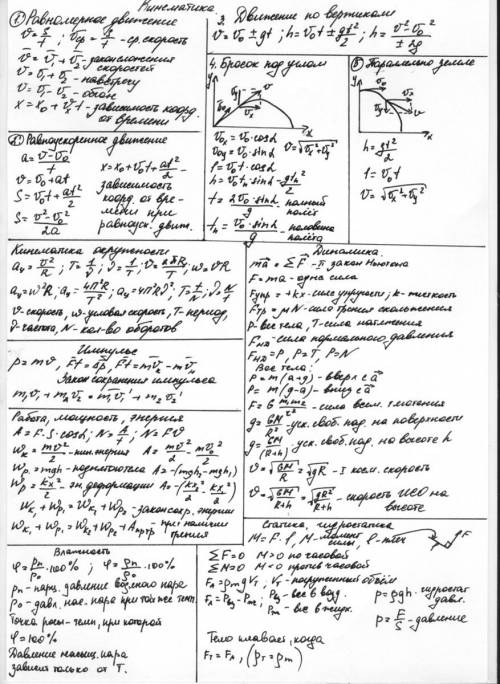 Кинематика
① Равномерное движение
v = S/t ; vср = S/t - ср. скорость
v̄ = v̄₁ + v̄₂ - закон сложения скоростей
v = v₁ + v₂ - навстречу
v = v₁ - v₂ - обгон
x = x₀ + vₓt - зависимость коорд. от времени
② Равноускоренное движение
a = (v - v₀)/t
v = v₀ + at
S = v₀t + at²/2
S = (v² - v₀²)/2a
x = x₀ + v₀t + at²/2 -
зависимость
коорд. от вре-
мени при
равноуск. движ.
3. Движение по вертикали
v = v₀ ± gt ; h = v₀t ± gt²/2 ; h = (v² - v₀²)/±2g
4. Бросок под углом
y
x
v₀ₓ = v₀ · cosα
v₀y = v₀ · sinα
v = √(vₓ² + vy²)
l = v₀t · cosα
h = v₀tп · sinα - gtп²/2
t = 2v₀ · sinα / g - полный полёт
tп = v₀ · sinα / g - половина полёта
⑤ Параллельно земле
y
v₀
vₓ
vy
v
x
h = gt²/2
l = v₀t
v = √(vₓ² + vy²)
Кинематика окружности
aц = v²/R ; T = 1/ν ; ν = 1/T ; v = 2πR/T ; v = ωR
aц = ω²R ; aц = 4π²R/T² ; aц = 4π²Rν² ; T = t/N ; ν = N/t
v - скорость, ω - угловая скорость, T - период,
ν - частота, N - кол-во оборотов
Импульс
p = mv , F̄t = Δp̄ , F̄t = mv̄₂ - mv̄₁
Закон сохранения импульса
m₁v̄₁ + m₂v̄₂ = m₁v̄₁' + m₂v̄₂'
Работа, мощность, энергия
A = F · S · cosα ; N = A/t ; N = Fv
Wк = mv²/2 - кин. энергия A = mv²/2 - mv₀²/2
Wp = mgh - пот. энергия тела A = -(mgh₂ - mgh₁)
Wp = kx²/2 - эн. деформации A = -(kx²/2 - kx²/2)
Wк₁ + Wp₁ = Wк₂ + Wp₂ - закон сохр. энергии
Wк₁ + Wp₁ = Wк₂ + Wp₂ + Aпр тр при наличии трения
Динамика.
mā = ΣF̄ - II закон Ньютона
F = ma - одна сила
Fупр = +kx - сила упругости ; k - жёсткость
Fтр = μN - сила трения скольжения
P - вес тела, T - сила натяжения
Fнд - сила нормального давления
Fнд = P, P = T, P = N
Вес тела:
P = m(a+g) - вверх с ā
P = m(g-a) - вниз с ā
F = G m₁m₂/r² - сила всем. тяготения
g = GM/R² - уск. своб. пад. на поверхности
g = GM/(R+h)² - уск. своб. пад. на высоте h
v = √(GM/R) = √gR - I косм. скорость
v = √(GM/(R+h)) = √(gR²/(R+h)) - скорость ИСЗ на высоте
Статика, гидростатика
M = F · l, M - момент силы, l - плеч
l F
ΣF = 0 M > 0 по часовой
ΣM = 0 M < 0 против часовой
Fᴀ = ρm g Vт , Vт - погруженный объём
Fᴀ = Pвз - Pж ; Pвз - вес в возд.
Pж - вес в жидк.
p = ρgh - гидростат. давл.
p = F/S - давление
Тело плавает, когда
Fт = Fᴀ , (ρт = ρж)
Влажность
φ = pп/p₀ · 100% ; φ = ρп/ρ₀ · 100%
pп - парц. давление водяного пара
p₀ - давл. нас. пара при той же темп.
Точка росы - темп, при которой
φ = 100%
Давление насыщ. пара
зависит только от T.